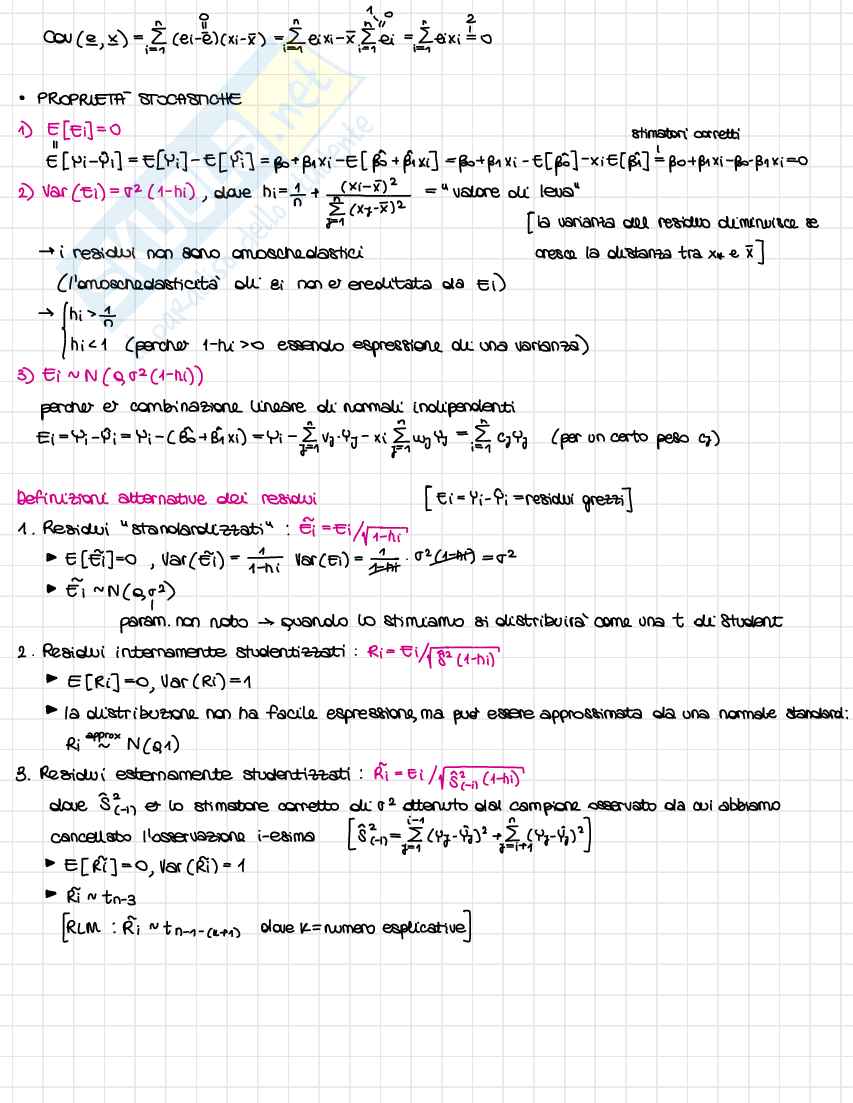 Cov(e,x) = Σ_{i=1}^{n} (ei-ē)(xi-x̄) = Σ_{i=1}^{n} eixi - x̄ Σ_{i=1}^{n} ei = Σ_{i=1}^{n} eixi = 0
• PROPRIETA' STOCASTICHE
1) E[Ei]=0
E[Yi-Ŷi] = E[Yi] - E[Ŷi] = β0+β1xi - E[β̂0+β̂1xi] = β0+β1xi - E[β̂0] - xiE[β̂1] = β0+β1xi-β0-β1xi=0
stimatori corretti
2) Var(Ei) = σ²(1-hi), dove hi = 1/n + (xi-x̄)²/Σ_{j=1}^{n}(xj-x̄)² = "valore di leva"
[la varianza del residuo diminuisce se
cresce la distanza tra x* e x̄]
→ i residui non sono omoschedastici
(l'omoschedasticità di εi non è ereditata da Ei)
→ { hi > 1/n
hi < 1 (perché 1-hi>0 essendo espressione di una varianza)
3) Ei ~ N(0,σ²(1-hi))
perché è combinazione lineare di normali indipendenti
Ei = Yi-Ŷi = Yi-(β̂0+β̂1xi) = Yi - Σ_{j=1}^{n} vj·Yj - xi Σ_{j=1}^{n} wjYj = Σ_{i=1}^{n} cjYj (per un certo peso cj)
Definizioni alternative dei residui [Ei=Yi-Ŷi=residui grezzi]
1. Residui "standardizzati" : Ẽi = Ei/√(1-hi)
▸ E[Ẽi]=0, Var(Ẽi) = 1/(1-hi) Var(Ei) = 1/(1-hi) · σ²(1-hi) = σ²
▸ Ẽi ~ N(0,σ²)
param. non noto → quando lo stimiamo si distribuirà come una t di Student
2. Residui internamente studentizzati : Ri = Ei/√(Ŝ²(1-hi))
▸ E[Ri]=0, Var(Ri)=1
▸ la distribuzione non ha facile espressione, ma può essere approssimata da una normale standard:
Ri ~approx N(0,1)
3. Residui esternamente studentizzati : R̃i = Ei/√(Ŝ²(-i)(1-hi))
dove Ŝ²(-i) è lo stimatore corretto di σ² ottenuto dal campione osservato da cui abbiamo
cancellato l'osservazione i-esima [Ŝ²(-i) = Σ_{j=1}^{i-1}(Yj-Ŷj)² + Σ_{j=i+1}^{n}(Yj-Ŷj)²]
▸ E[R̃i]=0, Var(R̃i)=1
▸ R̃i ~ tn-3
[RLM : R̃i ~ tn-1-(k+1) dove K=numero esplicative]